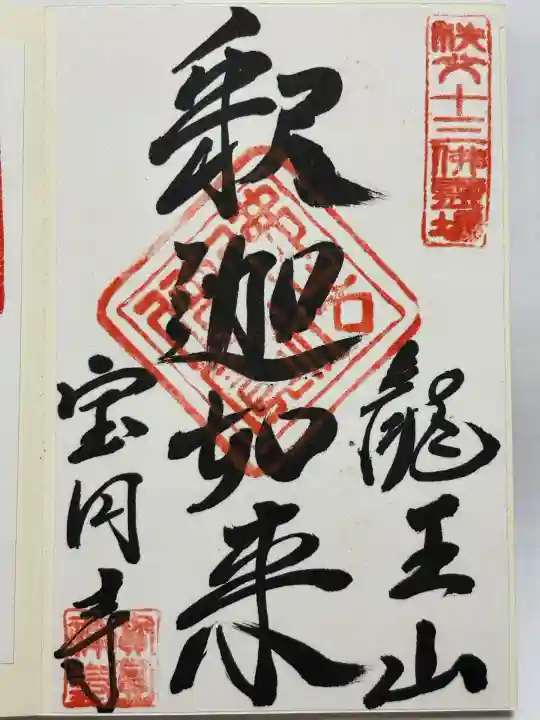 秩父十三佛霊場
龍王山
釈迦如来
宝円寺